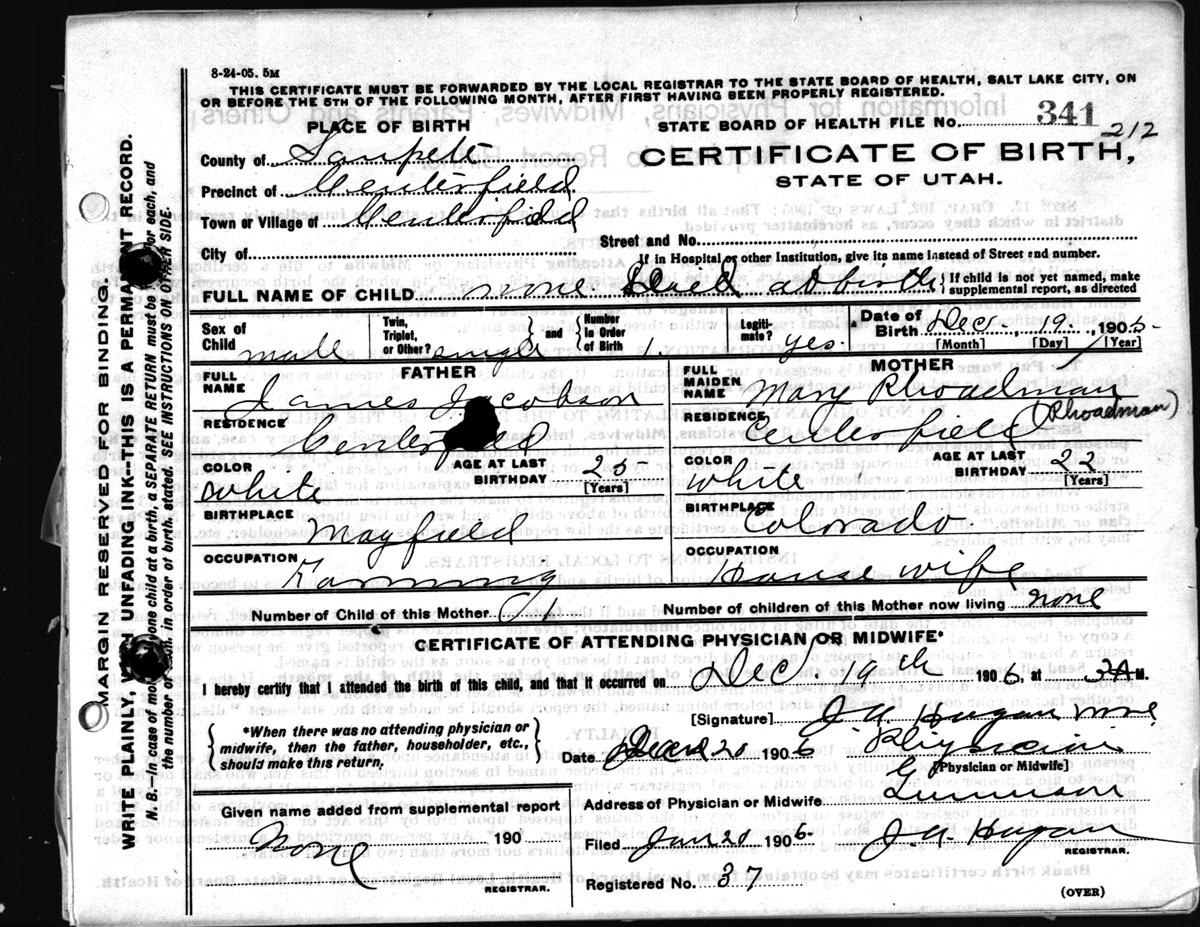 8-24-05. 5M
THIS CERTIFICATE MUST BE FORWARDED BY THE LOCAL REGISTRAR TO THE STATE BOARD OF HEALTH, SALT LAKE CITY, ON
OR BEFORE THE 5TH OF THE FOLLOWING MONTH, AFTER FIRST HAVING BEEN PROPERLY REGISTERED.
PLACE OF BIRTH
STATE BOARD OF HEALTH FILE No. 341 212
County of Sanpete
CERTIFICATE OF BIRTH,
Precinct of Centerfield
STATE OF UTAH.
Town or Village of Centerfield
Street and No.
City of
If in Hospital or other Institution, give its name instead of Street and number.
FULL NAME OF CHILD none Died at birth { If child is not yet named, make supplemental report, as directed
Sex of Child male
Twin, Triplet, or Other? single } and { Number in Order of Birth 1.
Legiti- mate? yes.
Date of Birth Dec. 19. 1905
[Month] [Day] [Year]
FATHER
MOTHER
FULL NAME James Jacobson
FULL MAIDEN NAME Mary Rhoadman
(Rhoadman)
RESIDENCE Centerfield
RESIDENCE Centerfield
COLOR White
AGE AT LAST BIRTHDAY 25 [Years]
COLOR White
AGE AT LAST BIRTHDAY 22 [Years]
BIRTHPLACE Mayfield
BIRTHPLACE Colorado.
OCCUPATION Farming
OCCUPATION House wife
Number of Child of this Mother 1.
Number of children of this Mother now living none
CERTIFICATE OF ATTENDING PHYSICIAN OR MIDWIFE*
I hereby certify that I attended the birth of this child, and that it occurred on Dec. 19th 1906 at 3 A M.
[Signature] J A Hagan
{ *When there was no attending physician or midwife, then the father, householder, etc., should make this return. }
Date 20 1906 Physician
[Physician or Midwife]
Given name added from supplemental report
Address of Physician or Midwife Gunnison
None 190
Filed Jan 20 1906 J A Hagan
REGISTRAR.
REGISTRAR.
Registered No. 37
(OVER)
MARGIN RESERVED FOR BINDING.
WRITE PLAINLY, WITH UNFADING INK--THIS IS A PERMANENT RECORD.
N. B.--In case of more than one child at a birth, a SEPARATE RETURN must be made for each, and
the number of each, in order of birth, stated. SEE INSTRUCTIONS ON OTHER SIDE.